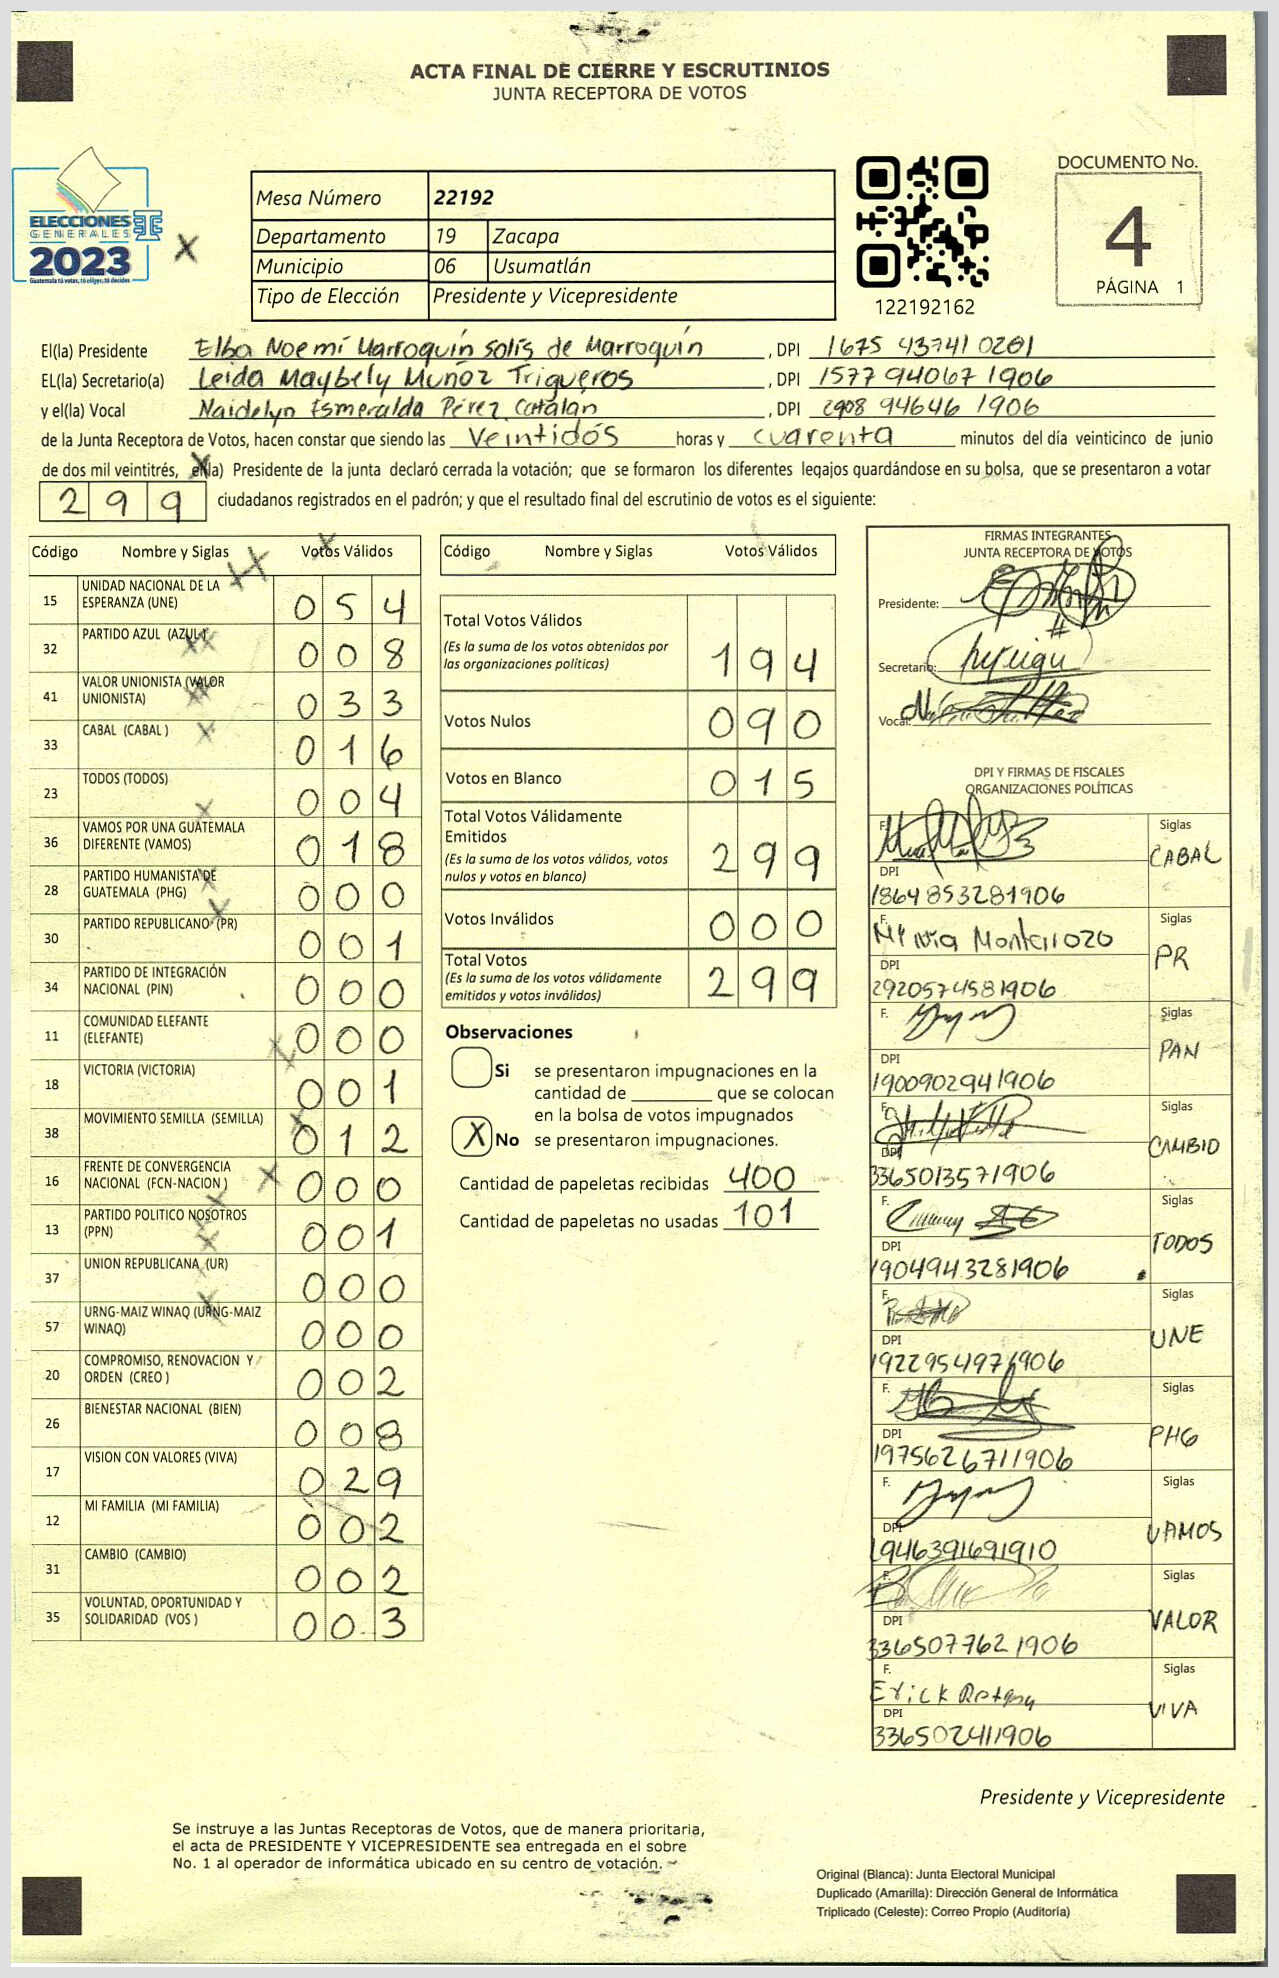 ACTA FINAL DE CIERRE Y ESCRUTINIOS
JUNTA RECEPTORA DE VOTOS
DOCUMENTO No.
4
PÁGINA 1
ELECCIONES
GENERALES
2023
Guatemala tú votas, tú eliges, tú decides
Mesa Número 22192
Departamento 19 Zacapa
Municipio 06 Usumatlán
Tipo de Elección Presidente y Vicepresidente
122192162
El(la) Presidente Elba Noemí Marroquín Solís de Marroquín , DPI 1675 43741 0201
EL(la) Secretario(a) Leida Maybely Muñoz Trigueros , DPI 1577 94067 1906
y el(la) Vocal Naidelyn Esmeralda Pérez Catalán , DPI 2908 94646 1906
de la Junta Receptora de Votos, hacen constar que siendo las Veintidós horas y cuarenta minutos del día veinticinco de junio
de dos mil veintitrés, el(la) Presidente de la junta declaró cerrada la votación; que se formaron los diferentes legajos guardándose en su bolsa, que se presentaron a votar
299 ciudadanos registrados en el padrón; y que el resultado final del escrutinio de votos es el siguiente:
Código Nombre y Siglas Votos Válidos
15 UNIDAD NACIONAL DE LA ESPERANZA (UNE) 054
32 PARTIDO AZUL (AZUL) 008
41 VALOR UNIONISTA (VALOR UNIONISTA) 033
33 CABAL (CABAL ) 016
23 TODOS (TODOS) 004
36 VAMOS POR UNA GUATEMALA DIFERENTE (VAMOS) 018
28 PARTIDO HUMANISTA DE GUATEMALA (PHG) 000
30 PARTIDO REPUBLICANO (PR) 001
34 PARTIDO DE INTEGRACIÓN NACIONAL (PIN) 000
11 COMUNIDAD ELEFANTE (ELEFANTE) 000
18 VICTORIA (VICTORIA) 001
38 MOVIMIENTO SEMILLA (SEMILLA) 012
16 FRENTE DE CONVERGENCIA NACIONAL (FCN-NACION ) 000
13 PARTIDO POLITICO NOSOTROS (PPN) 001
37 UNION REPUBLICANA (UR) 000
57 URNG-MAIZ WINAQ (URNG-MAIZ WINAQ) 000
20 COMPROMISO, RENOVACION Y ORDEN (CREO ) 002
26 BIENESTAR NACIONAL (BIEN) 008
17 VISION CON VALORES (VIVA) 029
12 MI FAMILIA (MI FAMILIA) 002
31 CAMBIO (CAMBIO) 002
35 VOLUNTAD, OPORTUNIDAD Y SOLIDARIDAD (VOS ) 003
Código Nombre y Siglas Votos Válidos
Total Votos Válidos
(Es la suma de los votos obtenidos por
las organizaciones politicas) 194
Votos Nulos 090
Votos en Blanco 015
Total Votos Válidamente
Emitidos
(Es la suma de los votos válidos, votos
nulos y votos en blanco) 299
Votos Inválidos 000
Total Votos
(Es la suma de los votos válidamente
emitidos y votos inválidos) 299
Observaciones
Si se presentaron impugnaciones en la
cantidad de ________ que se colocan
en la bolsa de votos impugnados
X No se presentaron impugnaciones.
Cantidad de papeletas recibidas 400
Cantidad de papeletas no usadas 101
FIRMAS INTEGRANTES
JUNTA RECEPTORA DE VOTOS
Presidente:
Secretario:
Vocal:
DPI Y FIRMAS DE FISCALES
ORGANIZACIONES POLÍTICAS
F. Siglas
CABAL
DPI
1864853281906
F. Siglas
Monterrozo
PR
DPI
2920574581906
F. Siglas
PAN
DPI
1900902941906
F. Siglas
CAMBIO
DPI
3365013571906
F. Siglas
TODOS
DPI
1904943281906
F. Siglas
UNE
DPI
1922954971906
F. Siglas
PHG
DPI
1975626711906
F. Siglas
VAMOS
DPI
1946391691910
F. Siglas
VALOR
DPI
3365077621906
F. Siglas
Erick
VIVA
DPI
336502411906
Presidente y Vicepresidente
Se instruye a las Juntas Receptoras de Votos, que de manera prioritaria,
el acta de PRESIDENTE Y VICEPRESIDENTE sea entregada en el sobre
No. 1 al operador de informática ubicado en su centro de votación.
Original (Blanca): Junta Electoral Municipal
Duplicado (Amarilla): Dirección General de Informática
Triplicado (Celeste): Correo Propio (Auditoría)